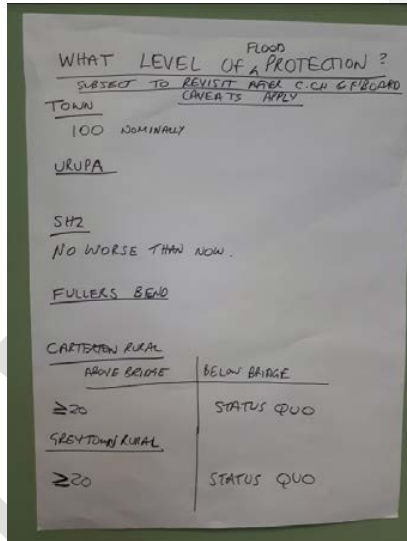 FLOOD
WHAT LEVEL OF PROTECTION ?
SUBJECT TO REVISIT AFTER C.CH & F'BOARD
CAVEATS APPLY
TOWN
100 NOMINALLY
URUPA
SH2
NO WORSE THAN NOW.
FULLERS BEND
CARTERTON RURAL
ABOVE BRIDGE BELOW BRIDGE
≥20 STATUS QUO
GREYTOWN RURAL
≥20 STATUS QUO